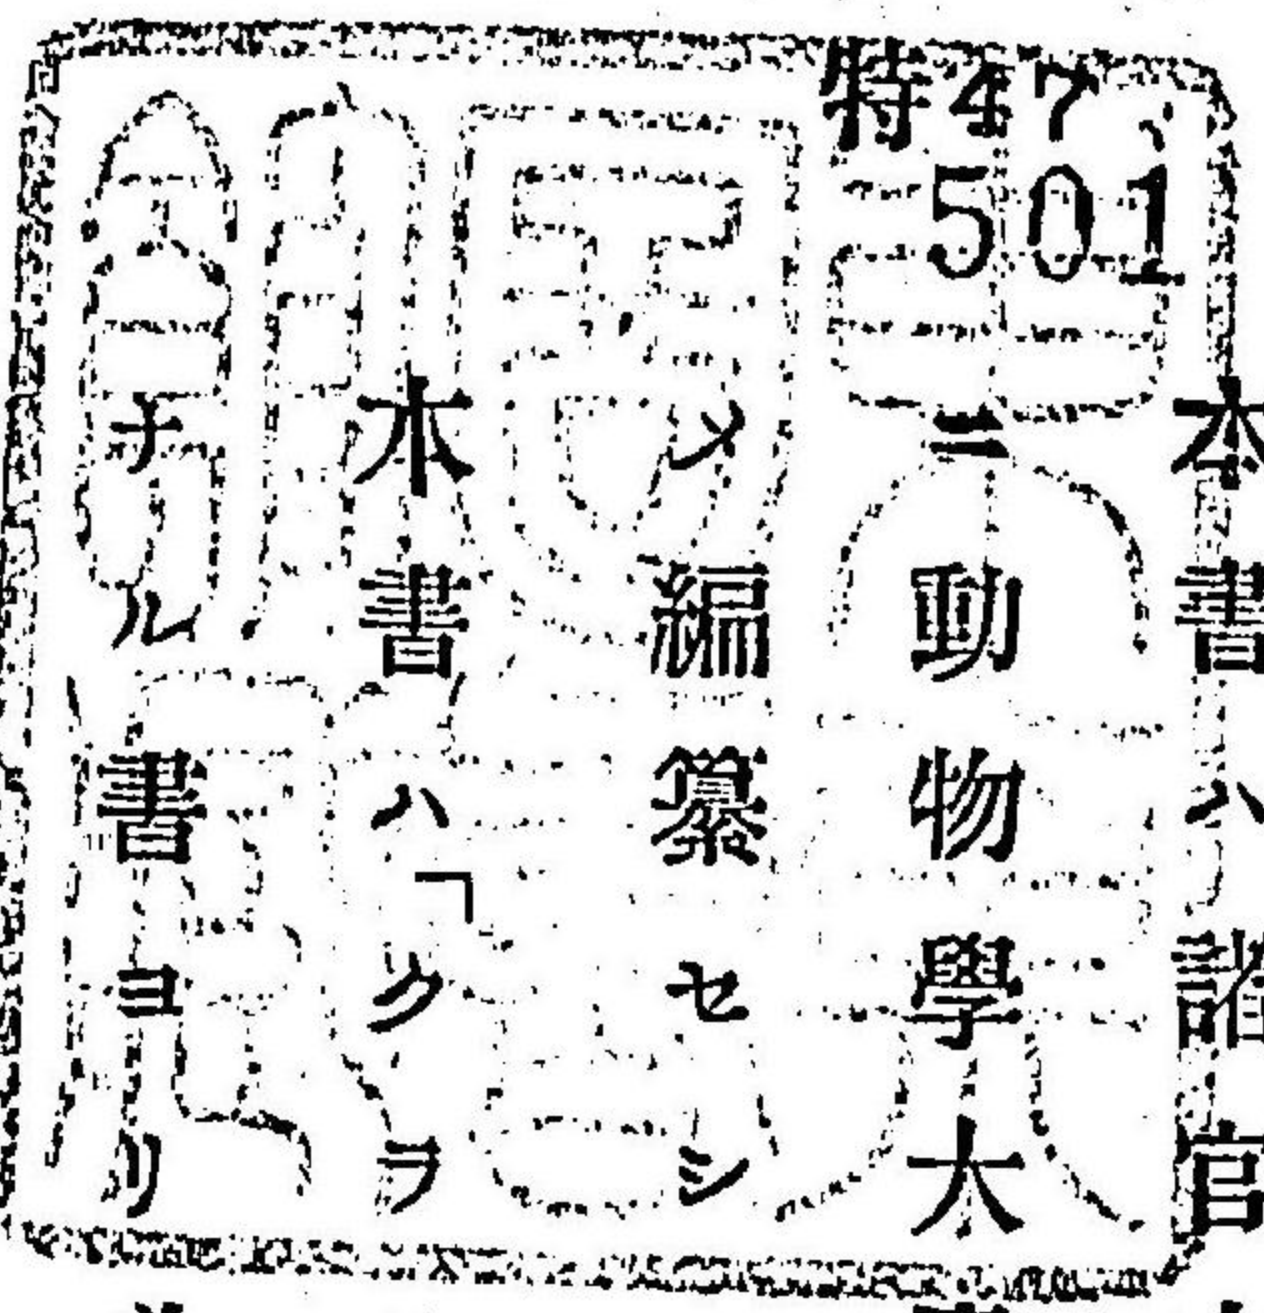 特47
501
本書ハ諸官
ニ動物學大
メ編纂セシ
本書ハ「クヲ
ナル書ヨリ